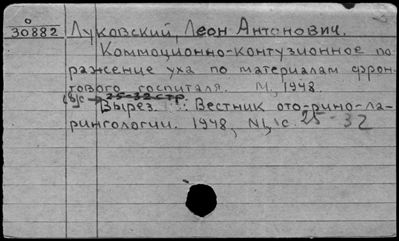 0
30882 Луковский, Леон Антонович.
Коммоционно-контузионное по
ражение уха по материалам фрон-
тового госпиталя. М, 1948.
25-32 стр.
Вырез. : Вестник ото-рино-ла-
рингологии. 1948, №1, с. 25-32